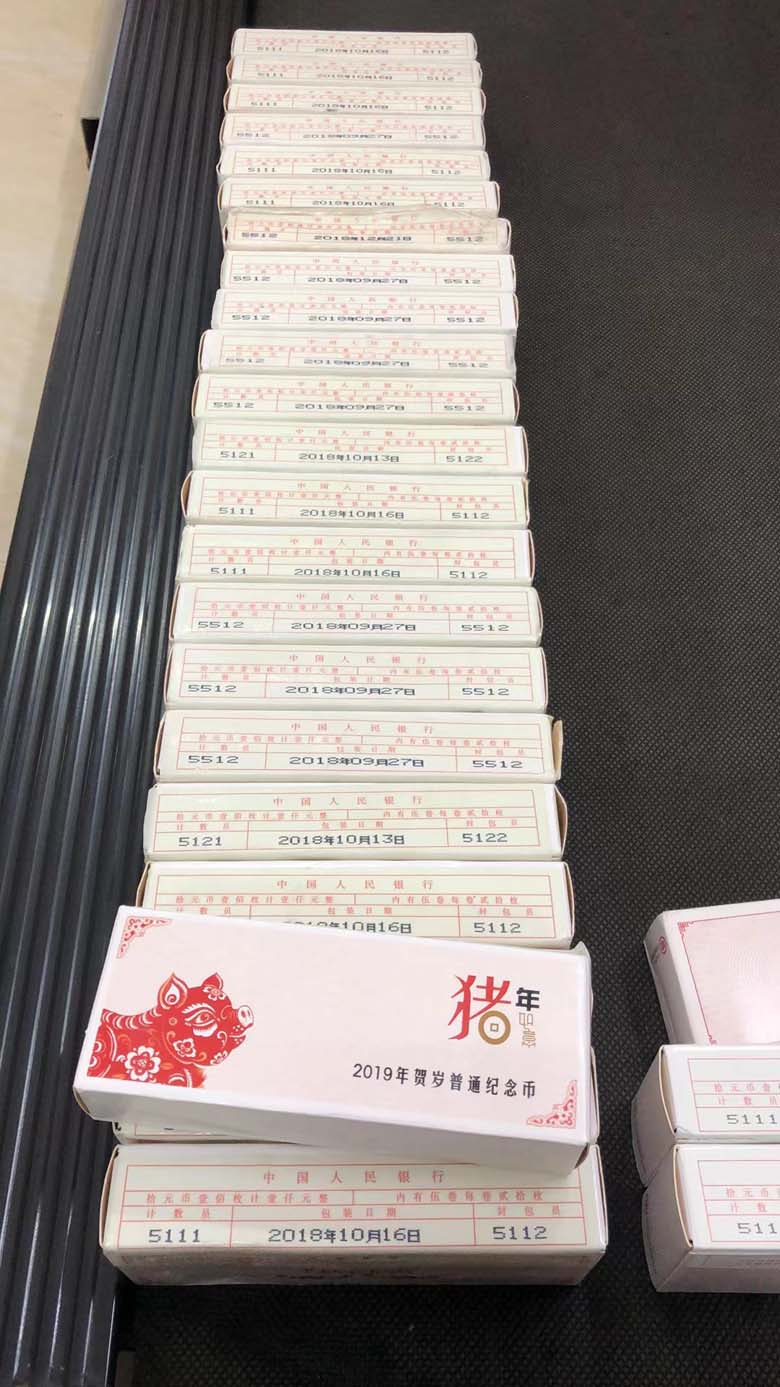 5111 2018年10月16日 5112
5111 2018年10月16日 5112
5111 2018年10月16日 5112
5512 2018年09月27日 5512
5111 2018年10月16日 5112
5111 2018年10月16日 5112
5512 2018年12月21日 5512
中国人民银行
5512 2018年09月27日 5512
中国人民银行
5512 2018年09月27日 5512
中国人民银行
5512 2018年09月27日 5512
中国人民银行
5512 2018年09月27日 5512
中国人民银行
5121 2018年10月13日 5122
中国人民银行
拾元币壹佰枚计壹仟元整 内有伍卷每卷贰拾枚
计数员 包装日期 封包员
5111 2018年10月16日 5112
中国人民银行
拾元币壹佰枚计壹仟元整 内有伍卷每卷贰拾枚
计数员 包装日期 封包员
5111 2018年10月16日 5112
中国人民银行
拾元币壹佰枚计壹仟元整 内有伍卷每卷贰拾枚
计数员 包装日期 封包员
5512 2018年09月27日 5512
中国人民银行
拾元币壹佰枚计壹仟元整 内有伍卷每卷贰拾枚
计数员 包装日期 封包员
5512 2018年09月27日 5512
中国人民银行
拾元币壹佰枚计壹仟元整 内有伍卷每卷贰拾枚
计数员 包装日期 封包员
5512 2018年09月27日 5512
中国人民银行
拾元币壹佰枚计壹仟元整 内有伍卷每卷贰拾枚
计数员 包装日期 封包员
5121 2018年10月13日 5122
中国人民银行
拾元币壹佰枚计壹仟元整 内有伍卷每卷贰拾枚
计数员 包装日期 封包员
2018年10月16日 5112
猪年
如意
2019年贺岁普通纪念币
中国人民银行
拾元币壹佰枚计壹仟元整 内有伍卷每卷贰拾枚
计数员 包装日期 封包员
5111 2018年10月16日 5112
拾元币壹佰枚
计数员
5111
拾元币壹佰
计数员
511